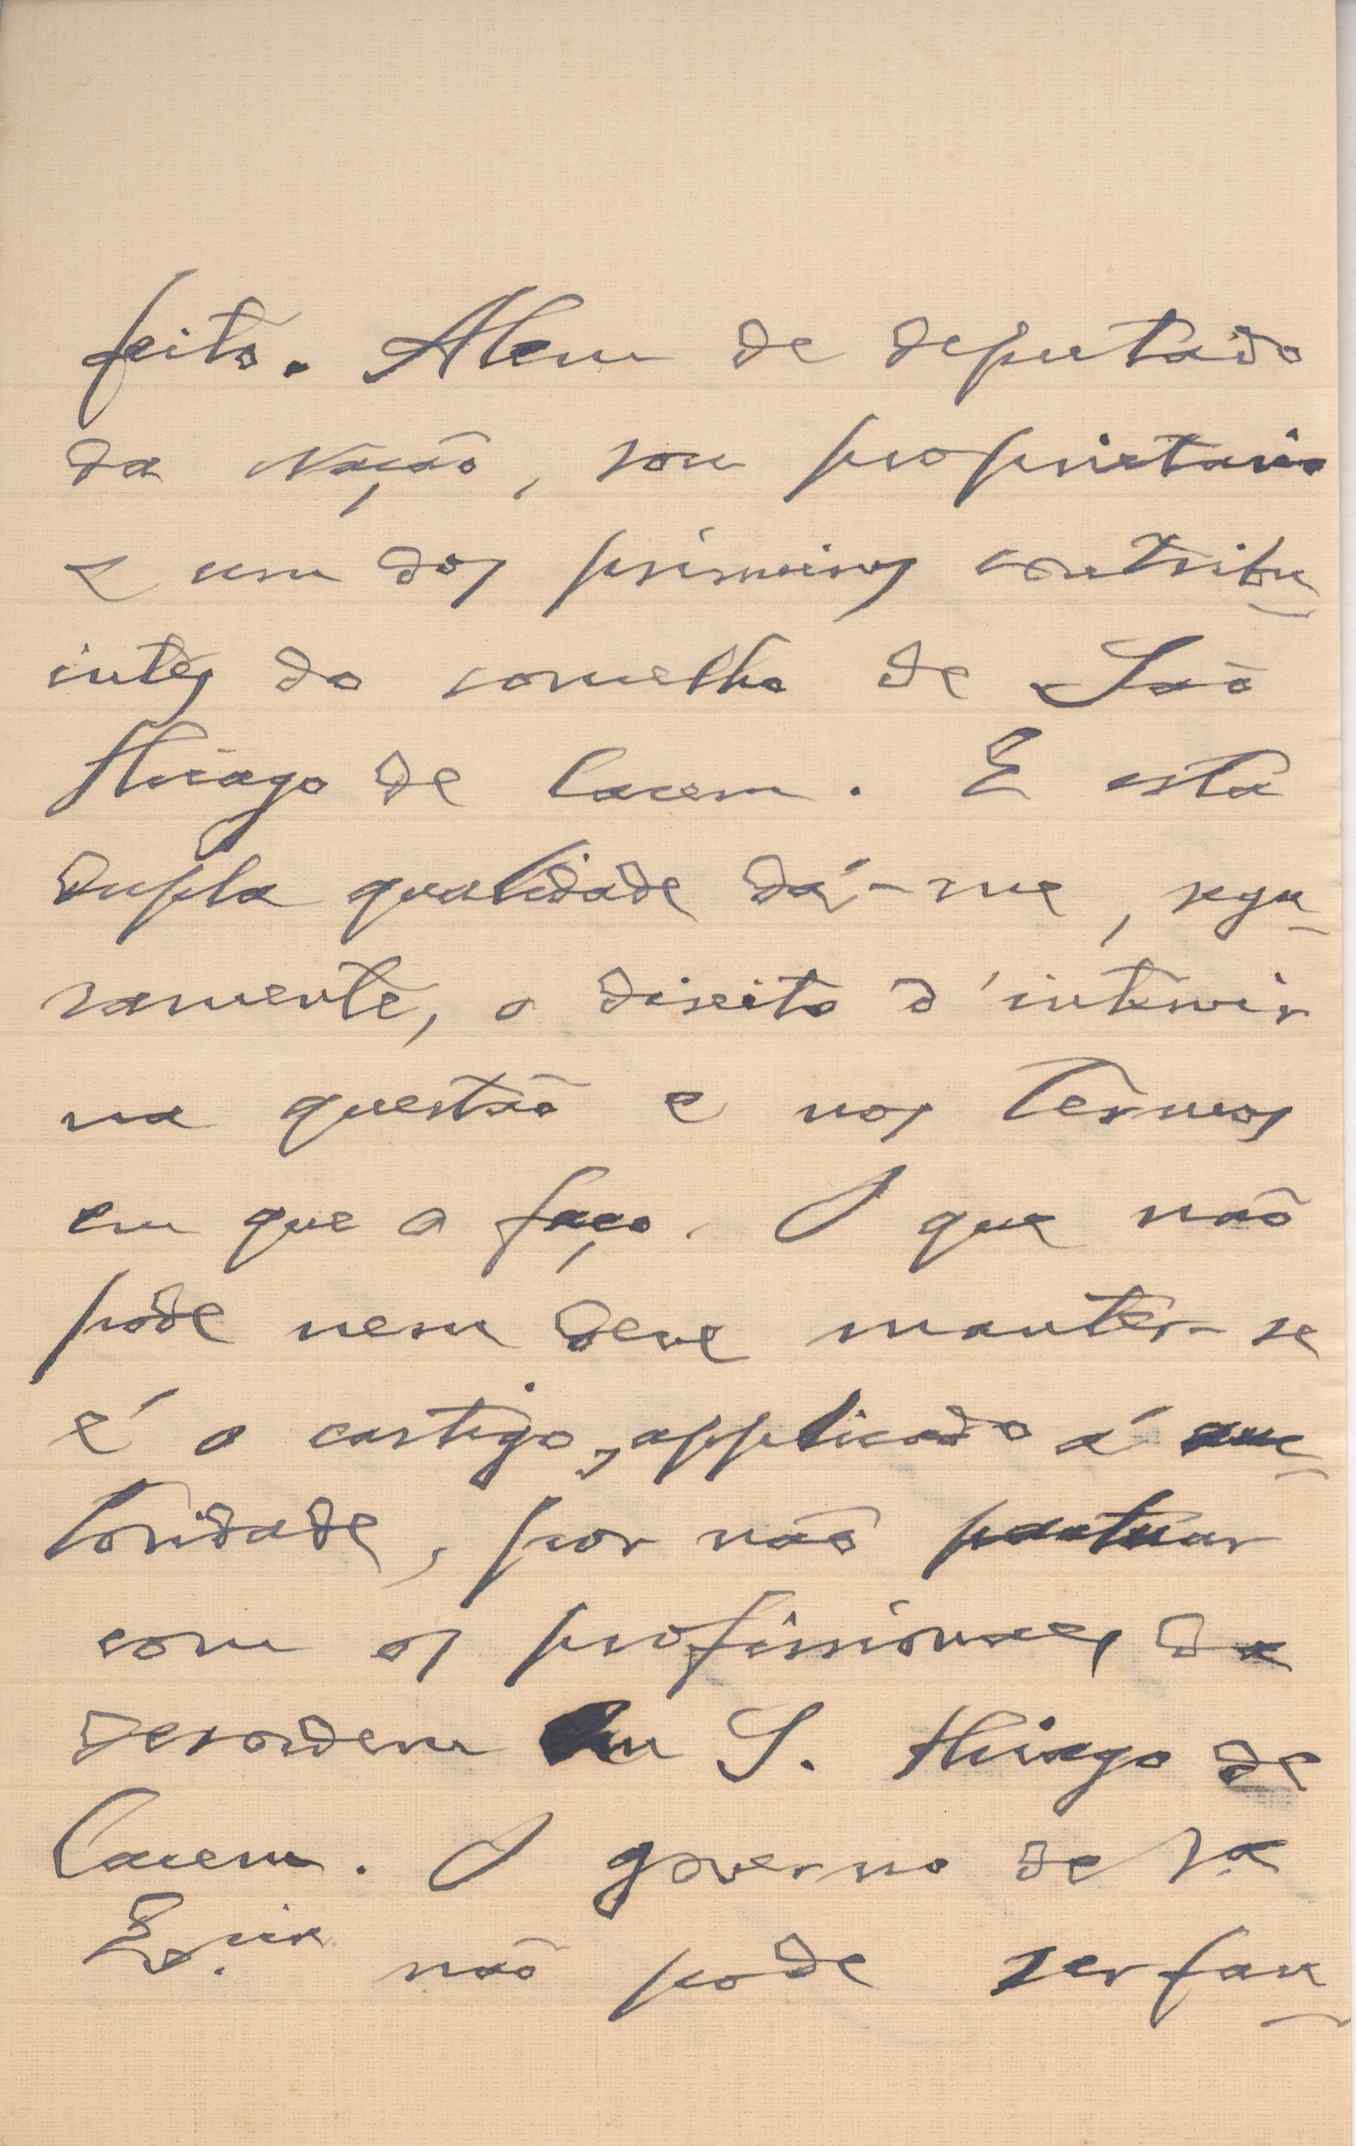 feito. Alem de deputado
da Nação, sou proprietario
e um dos primeiros contribu
intes do concelho de São
Thiago de Cacem. E esta
dupla qualidade dá-me, segu-
ramente, o direito d'intervir
na questão e nos termos
em que o faço. O que não
pode nem deve manter-se
é o castigo, applicado á au-
toridade, por não pactuar
com os profissionaes da
desordem em S. Thiago de
Cacem. O governo de Va
Exa. não pode ser fau